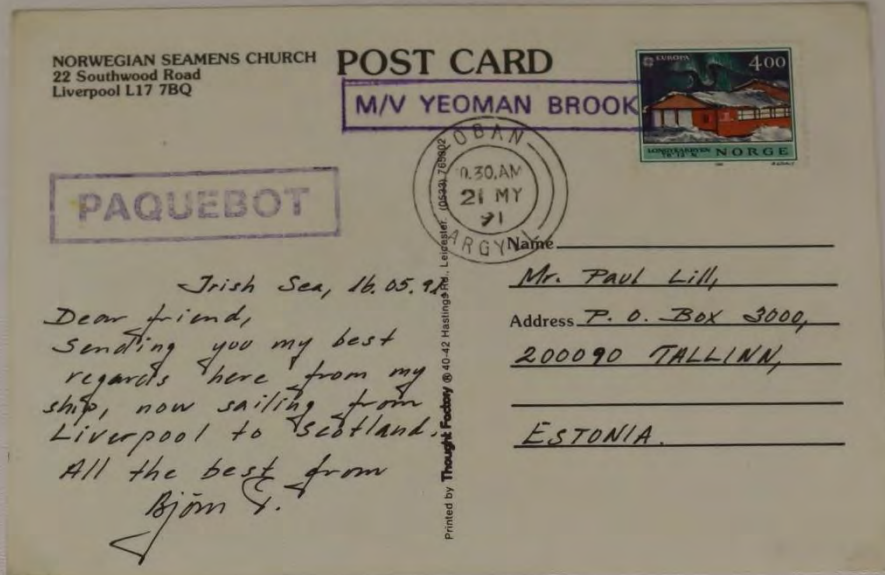 NORWEGIAN SEAMENS CHURCH
22 Southwood Road
Liverpool L17 7BQ
POST CARD
M/V YEOMAN BROOK
EUROPA 4.00
LONGYEARBYEN
78 12 N NORGE
OBAN
.30.AM
21 MY
91
ARGYLL
PAQUEBOT
Irish Sea, 16.05.91
Dear friend,
Sending you my best
regards here from my
ship, now sailing from
Liverpool to Scotland.
All the best from
Björn
Printed by Thought Factory ® 40-42 Hastings Rd., Leicester. (0533) 765302
Name
Mr. Paul Lill,
Address P. O. Box 3000,
200090 TALLINN,
ESTONIA.